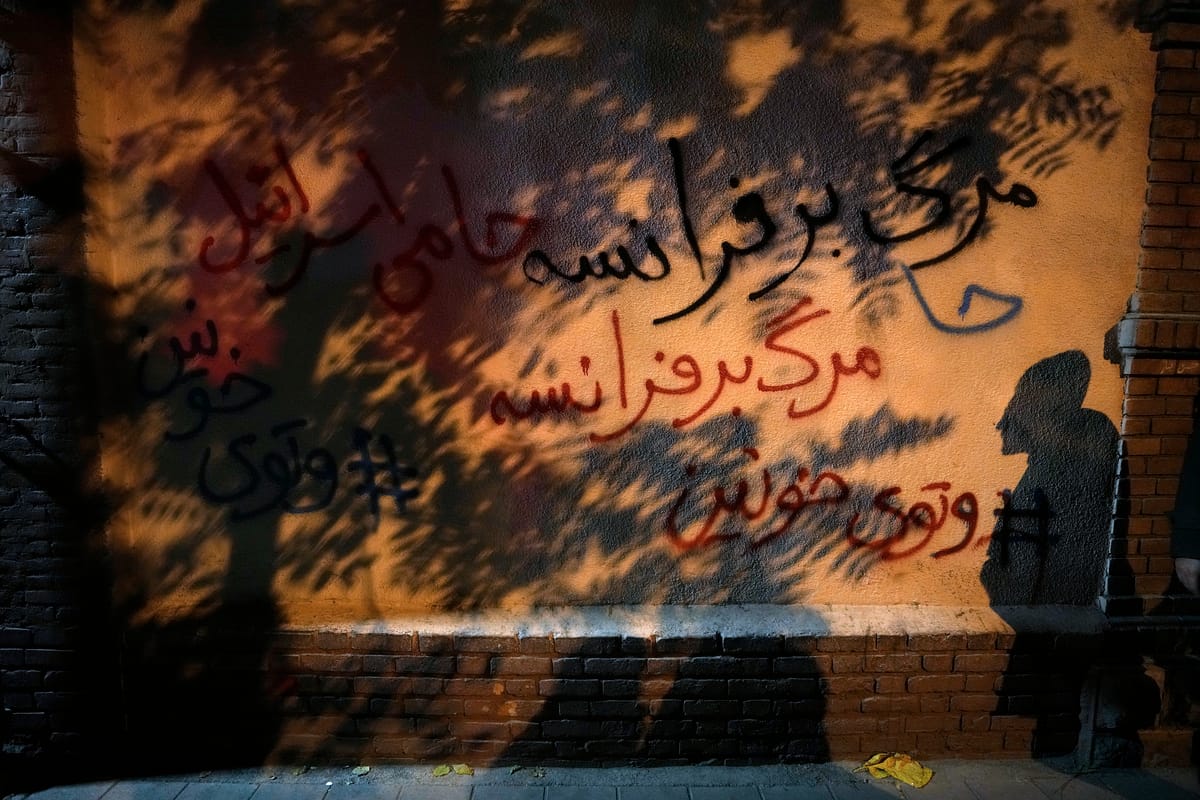 مرگ بر فرانسه حامی اسرائیل
حا
مرگ بر فرانسه
#وتوی خونین
#وتوی خونین